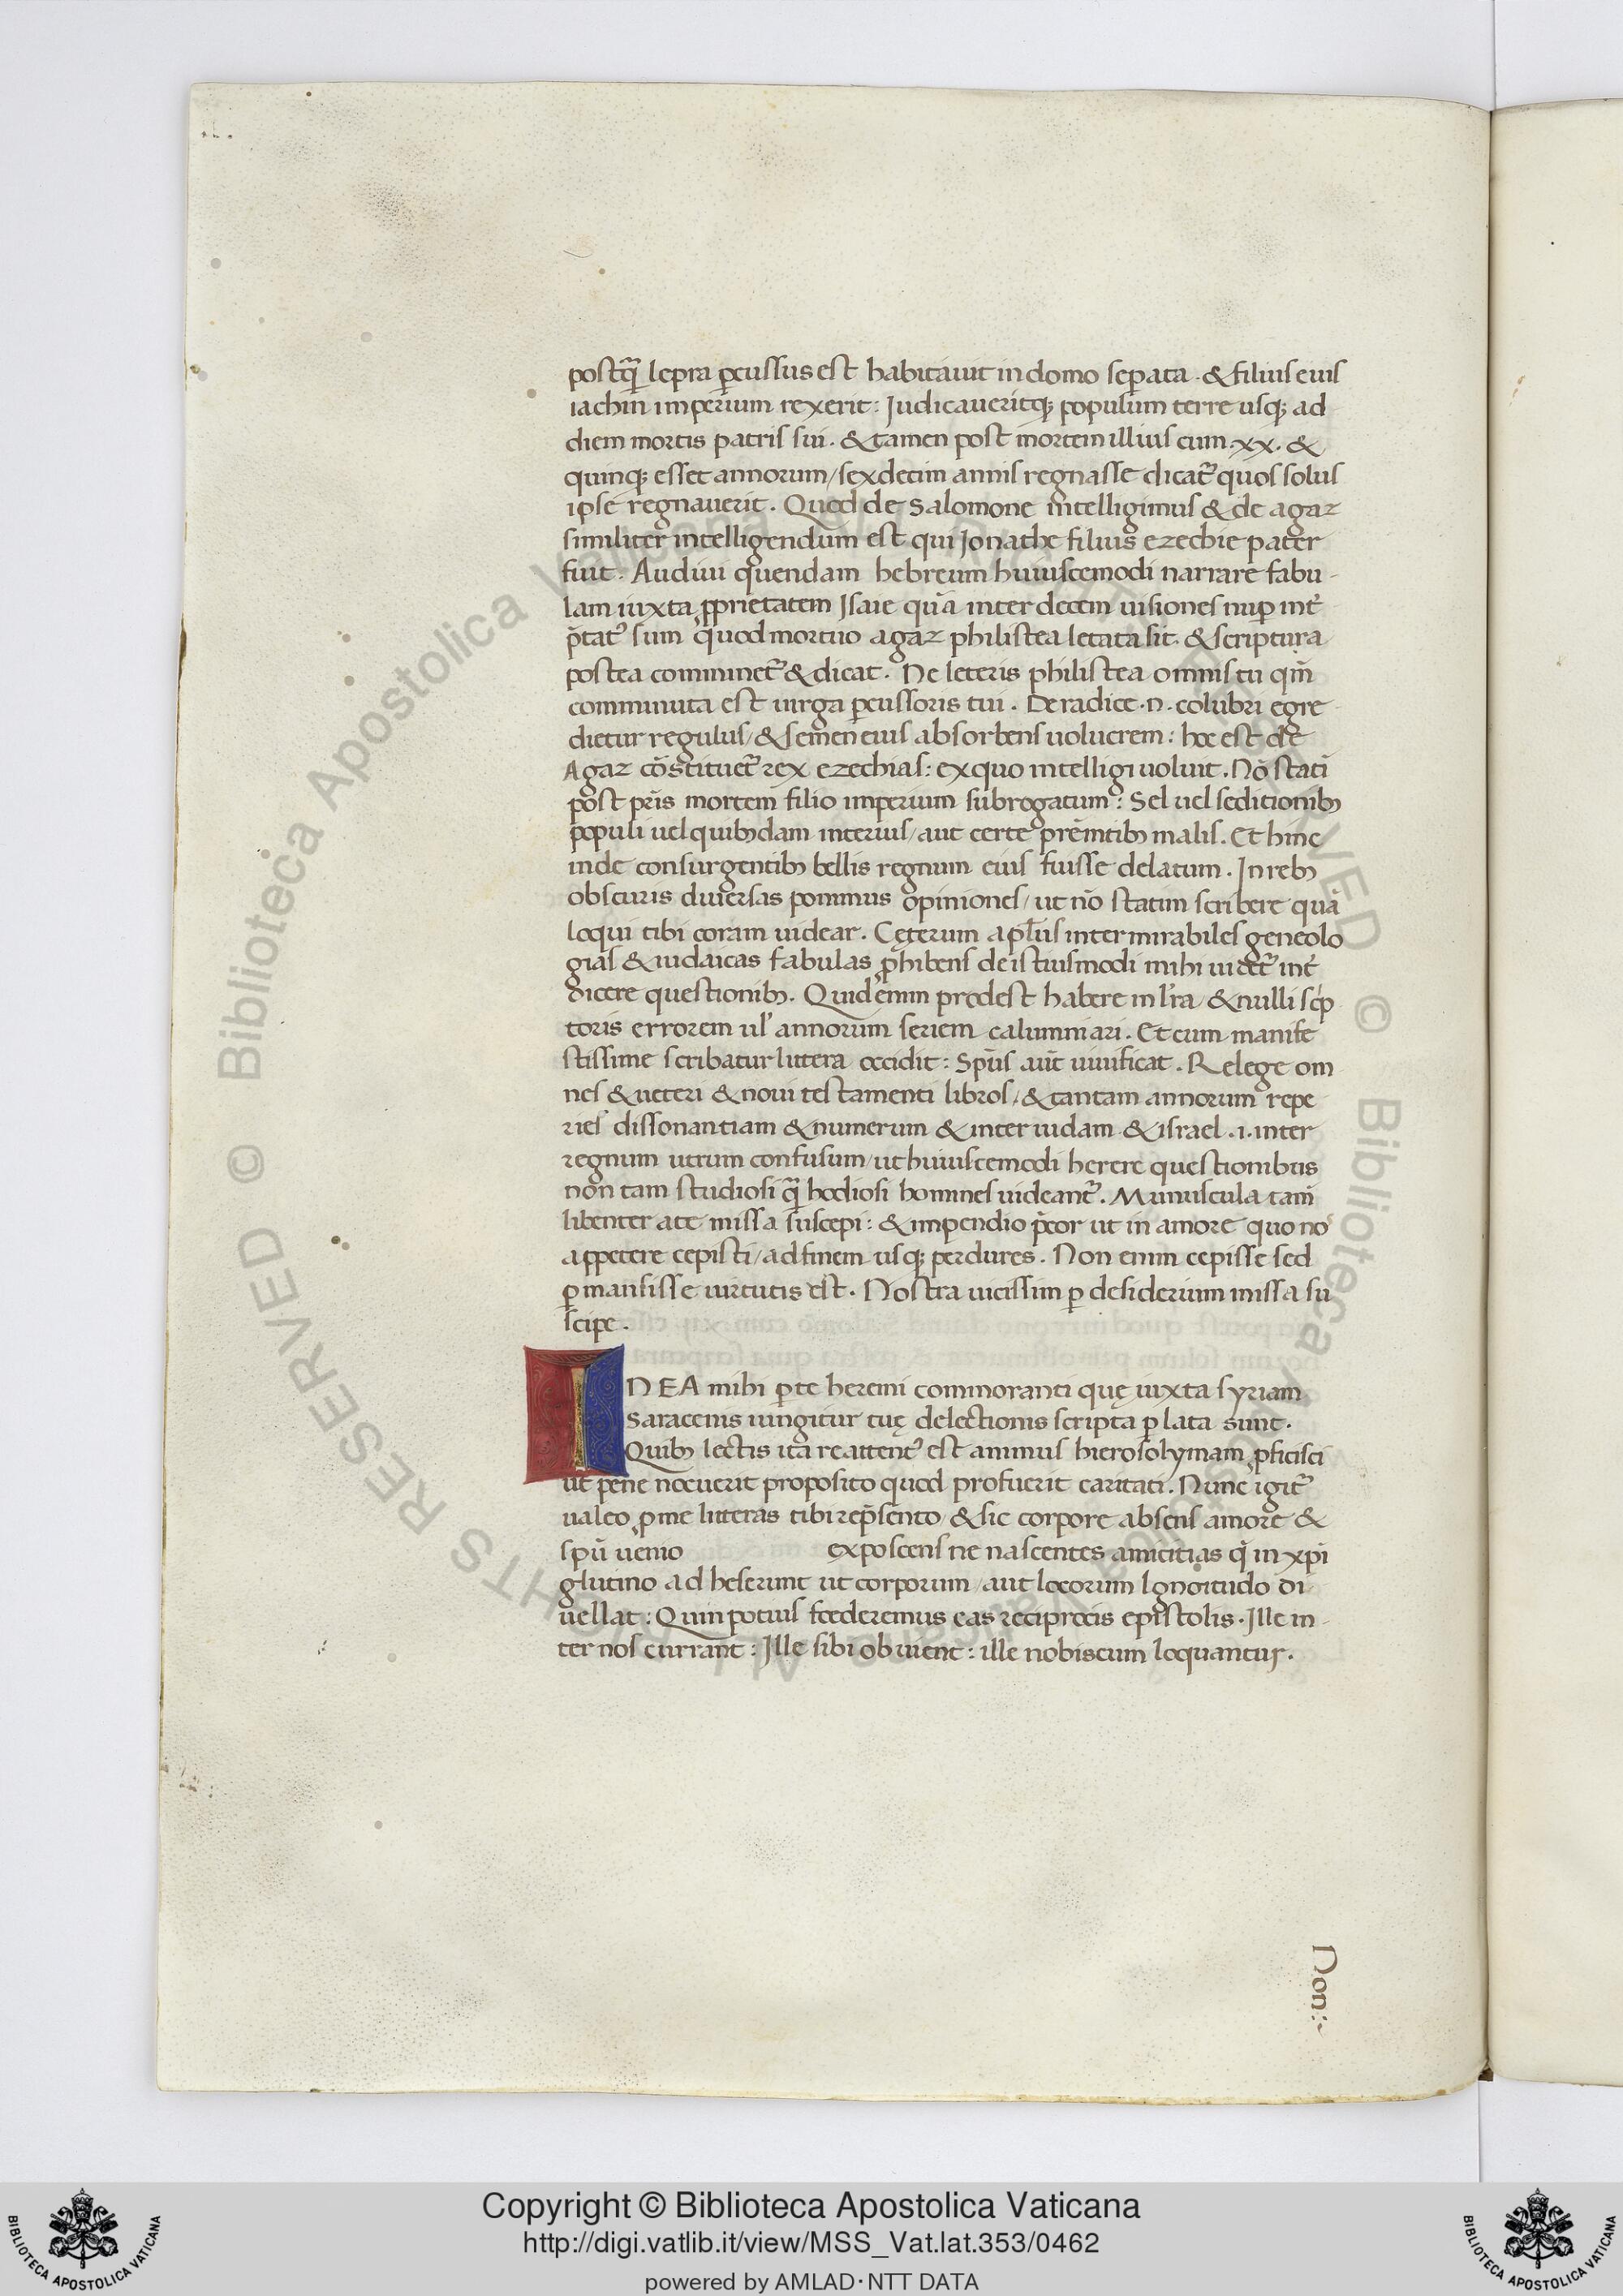 postq̃ lepra ꝑcussus est habitauit in domo seꝑata. & filius eius
iachin imperium rexerit: Iudicaueritq; populum terre usq; ad
diem mortis patris sui. & tamen post mortem illius cum .xx. &
quinq; esset annorum / sexdecim annis regnasse dicat᷑ quos solus
ipse regnauerit. Quod de Salomone intelligimus & de agaz
similiter intelligendum est qui Ionathe filius ezechie pater
fuit. Audiui quendam hebreum huiuscemodi narrare fabu-
lam iuxta ꝓprietatem Isaie quā inter decem uisiones nuꝑ int̃
p̃tat᷑ sum quod mortuo agaz philistea letata sit. & scriptura
postea comminet᷑ & dicat. Ne leteris philistea omnis tu qm̃
comminuta est uirga ꝑcussoris tui. De radice .n. colubri egre
dietur regulus / & semen eius absorbens uolucrem: hoc est de
Agaz cōstituet᷑ rex ezechias: ex quo intelligi uoluit. Nō stati
post pr̃is mortem filio imperium subrogatum: Sel uel seditionibꝫ
populi uel quibꝫdam interius / aut certe prēmtibꝫ malis. Et hinc
inde consurgentibꝫ bellis regnum eius fuisse delatum. In rebꝫ
obscuris diuersas ponimus opiniones / ut nō statim scribere quā
loqui tibi coram uidear. Cęterum apl̃us inter mirabiles geneolo
gias & iudaicas fabulas ꝓhibens de istiusmodi mihi uidet᷑ int̃
dicere questionibꝫ. Quid enim prodest habere in lr̃a & nulli sc̃p
toris errorem ul' annorum seriem calumniari. Et cum manife
stissime scribatur littera occidit: Sp̃us aut̃ uiuificat. Relege om
nes & ueteri & noui testamenti libros / & tantam annorum repe
ries dissonantiam & numerum & inter iudam & israel .i. inter
regnum utrum confusum / ut huiuscemodi herere questionibus
non tam studiosi q̃ hodiosi homines uideant᷑. Munuscula tam̃
libenter a te missa suscepi: & impendio p̃cor ut in amore quo nos
appetere cepisti / ad finem usq; perdures. Non enim cepisse sed
ꝑmansisse uirtutis est. Nostra uicissim ꝑ desiderium missa su
scipe.
IN EA mihi ꝑte heremi commoranti quę iuxta syriam
Saracenis iungitur tuę delectionis scripta ꝑlata sunt.
Quibꝫ lectis ita reattent᷑ est animus hierosolymam ꝓficisci
ut pene nocuerit proposito quod profuerit caritati. Nunc igit᷑
ualeo ꝓ me litteras tibi rep̃sento / & sic corpore absens amore &
spũ uenio exposcens ne nascentes amicitias q̃ in xp̃i
glutino adheserunt ut corporum / aut locorum longitudo di
uellat: Quin potius foederemus eas reciprocis epistolis. Ille in-
ter nos currant: Ille sibi obuient: ille nobiscum loquantur.
Non:
Copyright © Biblioteca Apostolica Vaticana
http://digi.vatlib.it/view/MSS_Vat.lat.353/0462
powered by AMLAD·NTT DATA
BIBLIOTECA APOSTOLICA VATICANA
BIBLIOTECA APOSTOLICA VATICANA